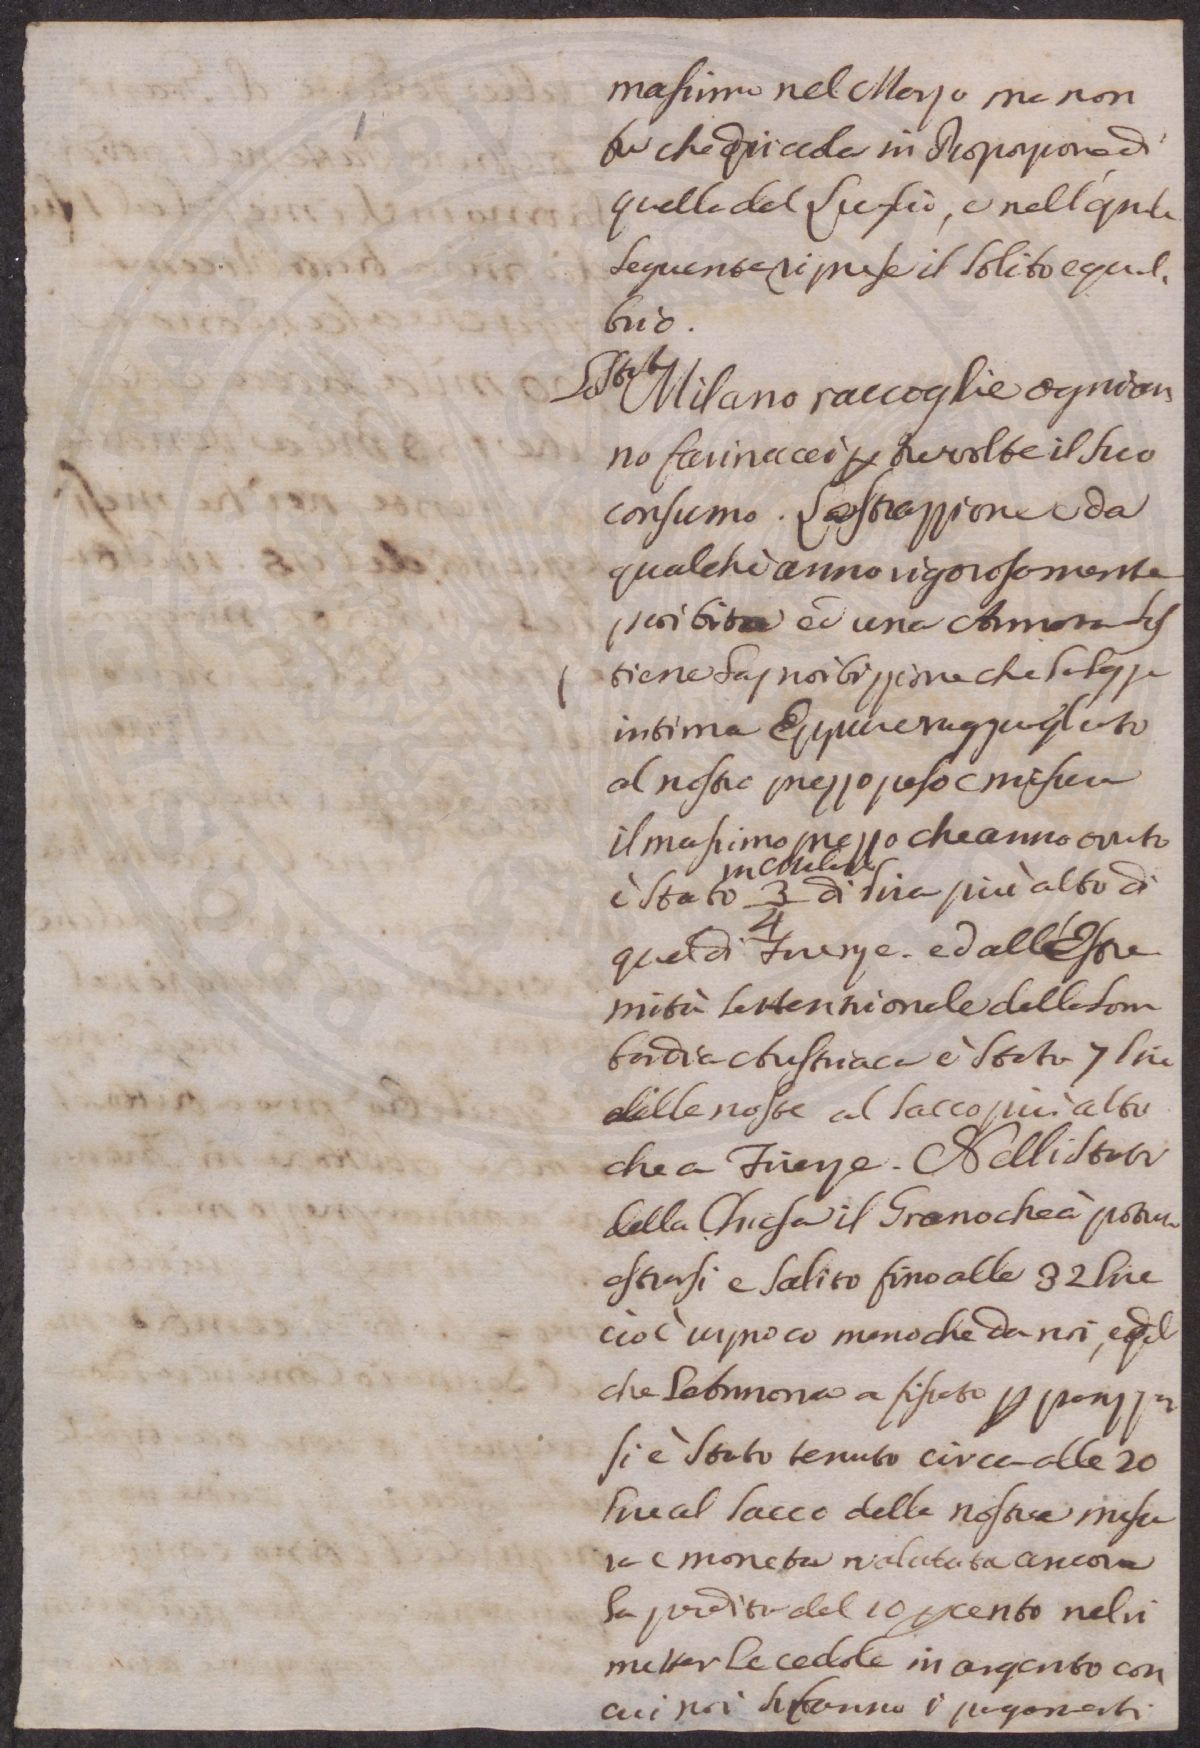 massimo nel Marzo ma non
fu che piccola in Proporzione di
quella del Luglio, e nell'
seguente riprese il solito equil.
brio.
Lo Stato Milano raccoglie ogni an
no farinacei p tre volte il suo
consumo. L'estrazzione e da
qualche anno rigorosamente
proibita ed una Armata sos
tiene la proibizzione che la legge
intima Eppure ragguagliato
al nostro prezzo peso e misura
il massimo prezzo che anno avuto
in
è stato 3/4 di lira più alto di
quel di Firenze. ed all'Estre
mità settentrionale della Lom
bardia Austriaca è stato 7 lire
delle nostre al sacco più alto
che a Firenze. Nelli Stati
della Chiesa il Grano che à potuto
estrarsi e salito fino alle 32 lire
cioè un poco meno che da noi, e quel
che l'Annona a fissato p panizzar
si è stato tenuto circa alle 20
lire al sacco della nostra misu
ra e moneta valutata ancora
la perdita del 10 p cento nel ri
metter le cedole in argento con
cui noi si fanno i pagamenti